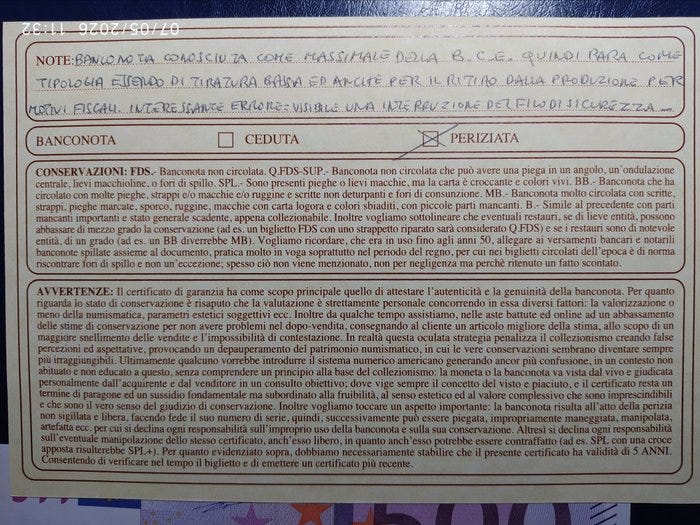 07/05/2026 11:32
NOTE: BANCONOTA CONOSCIUTA COME MASSIMALE DELLA B.C.E. QUINDI RARA COME
TIPOLOGIA ESSENDO DI TIRATURA BASSA ED ANCHE PER IL RITIRO DALLA PRODUZIONE PER
MOTIVI FISCALI. INTERESSANTE ERRORE = VISIBILE UNA INTERRUZIONE DEL FILO DI SICUREZZA
BANCONOTA CEDUTA PERIZIATA
CONSERVAZIONI: FDS.- Banconota non circolata. Q.FDS-SUP.- Banconota non circolata che può avere una piega in un angolo, un'ondulazione
centrale, lievi macchioline, o fori di spillo. SPL.- Sono presenti pieghe o lievi macchie, ma la carta è croccante e colori vivi. BB.- Banconota che ha
circolato con molte pieghe, strappi e/o macchie e/o ruggine e scritte non deturpanti e fori di consunzione. MB.- Banconota molto circolata con scritte,
strappi, pieghe marcate, sporco, ruggine, macchie con carta logora e colori sbiaditi, con piccole parti mancanti. B.- Simile al precedente con parti
mancanti importanti e stato generale scadente, appena collezionabile. Inoltre vogliamo sottolineare che eventuali restauri, se di lieve entità, possono
abbassare di mezzo grado la conservazione (ad es. un biglietto FDS con uno strappetto riparato sarà considerato Q.FDS) e se i restauri sono di notevole
entità, di un grado (ad es. un BB diverrebbe MB). Vogliamo ricordare, che era in uso fino agli anni 50, allegare ai versamenti bancari e notarili
banconote spillate assieme al documento, pratica molto in voga soprattutto nel periodo del regno, per cui nei biglietti circolati dell'epoca è di norma
riscontrare fori di spillo e non un'eccezione; spesso ciò non viene menzionato, non per negligenza ma perchè ritenuto un fatto scontato.
AVVERTENZE: Il certificato di garanzia ha come scopo principale quello di attestare l'autenticità e la genuinità della banconota. Per quanto
riguarda lo stato di conservazione è risaputo che la valutazione è strettamente personale concorrendo in essa diversi fattori: la valorizzazione o
meno della numismatica, parametri estetici soggettivi ecc. Inoltre da qualche tempo assistiamo, nelle aste battute ed online ad un abbassamento
delle stime di conservazione per non avere problemi nel dopo-vendita, consegnando al cliente un articolo migliore della stima, allo scopo di un
maggiore snellimento delle vendite e l'impossibilità di contestazione. In realtà questa oculata strategia penalizza il collezionismo creando false
percezioni ed aspettative, provocando un depauperamento del patrimonio numismatico, in cui le vere conservazioni sembrano diventare sempre
più irraggiungibili. Ultimamente qualcuno vorrebbe introdurre il sistema numerico americano generando ancor più confusione, in un contesto non
abituato e non educato a questo, senza comprendere un principio alla base del collezionismo: la moneta o la banconota va vista dal vivo e giudicata
personalmente dall'acquirente e dal venditore in un consulto obiettivo; dove vige sempre il concetto del visto e piaciuto, e il certificato resta un
termine di paragone ed un sussidio fondamentale ma subordinato alla fruibilità, al senso estetico ed al valore complessivo che sono imprescindibili
e che sono il vero senso del giudizio di conservazione. Inoltre vogliamo toccare un aspetto importante: la banconota risulta all'atto della perizia
non sigillata e libera, facendo fede il suo numero di serie, quindi, successivamente può essere piegata, impropriamente maneggiata, manipolata,
artefatta ecc. per cui si declina ogni responsabilità sull'improprio uso della banconota e sulla sua conservazione. Altresì si declina ogni responsabilità
sull'eventuale manipolazione dello stesso certificato, anch'esso libero, in quanto anch'esso potrebbe essere contraffatto (ad es. SPL con una croce
apposta risulterebbe SPL+). Per quanto evidenziato sopra, dobbiamo necessariamente stabilire che il presente certificato ha validità di 5 ANNI.
Consentendo di verificare nel tempo il biglietto e di emettere un certificato più recente.
500